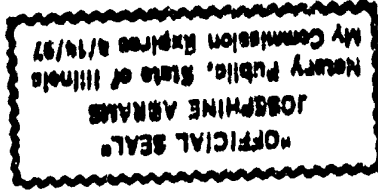 "OFFICIAL SEAL"
JOSEPHINE ABRAMS
Notary Public, State of Illinois
My Commission Expires 4/14/97